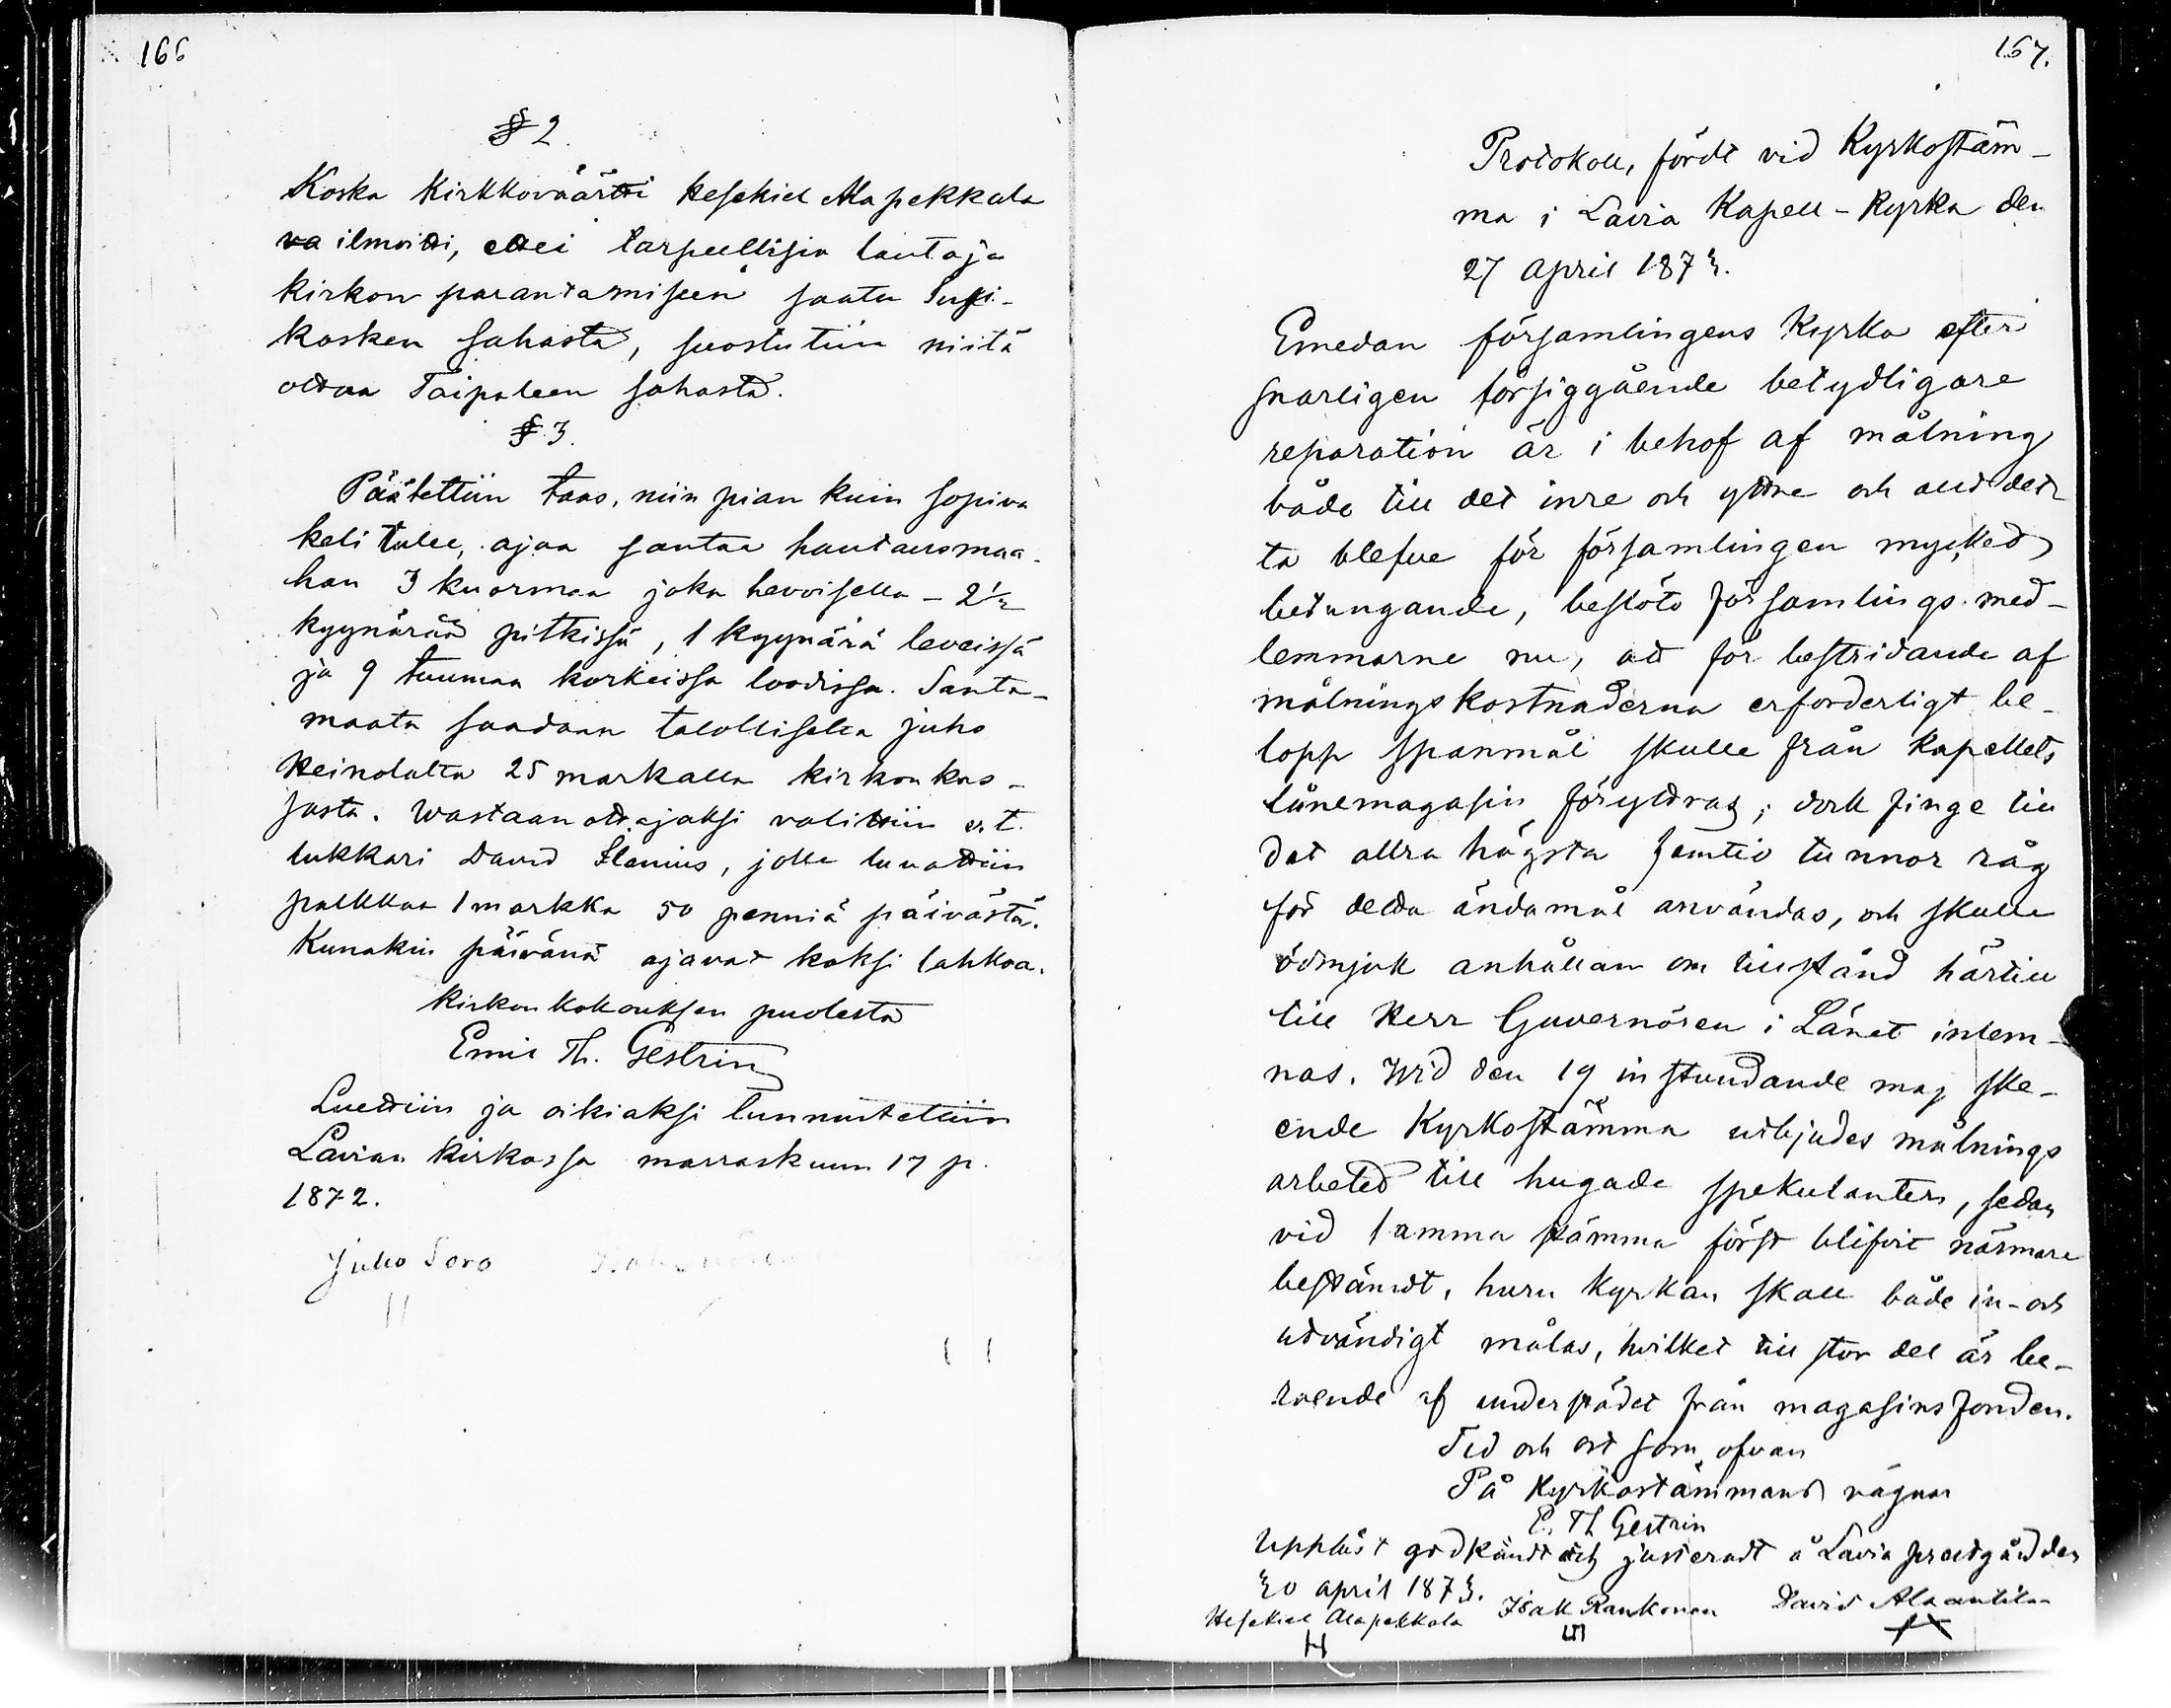 166
§ 2.
Koska Kirkkoväärtti Hesekiel Alapekkala
va ilmoitti, ettei tarpeellisia lautoja
kirkon parantamiseen saatu Susi-
kosken sahasta, suostuttiin niitä
ottaa Taipaleen sahasta.
§ 3.
Päätettiin taas, niin pian kuin sopiva
keli tulee, ajaa santaa hautausmaa-
han 3 kuormaa joka hevoisella - 2½
kyynärää pitkissä, 1 kyynärä leveissä
ja 9 tuumaa korkeissa loodissa. Santa-
maata saadaan talolliselta Juho
Heinolalta 25 markalla kirkon kas-
sasta. Wastaanottajaksi valittiin v.t.
lukkari David Stenius, jolle luvattiin
palkkaa 1 markka 50 penniä päivästä.
Kunakin päivänä ajavat kaksi lahkoa.
Kirkonkokouksen puolesta
Emil Th. Gestrin
Luettiin ja oikiaksi tunnustettiin
Lavian kirkossa marraskuun 17 p.
1872.
Juho Soro
157.
Protokoll, fördt vid Kyrkostäm-
ma i Lavia Kapell-Kyrka den
27 April 1873.
Emedan församlingens Kyrka efter
snarligen försiggående betydligare
reparation är i behof af målning
både till det inre och yttre och allt det-
ta blefve för församlingen mycket
betungande, beslöto församlings med-
lemmarne nu, att för bestridande af
målningskostnaderna erforderligt be-
lopp spanmål skulle från Kapellets
lånemagasin föryttras; dock finge till
det allra högsta femtio tunnor råg
för detta ändamål användas, och skulle
ödmjuk anhållan om tillstånd härtill
till Herr Guvernören i Länet inlem-
nas. Wid den 19 instundande maj ske-
ende Kyrkostämma utbjudes målnings
arbetet till hugade spekulanter, sedan
vid samma stämma först blifvit närmare
bestämdt, huru Kyrkan skall både in- och
utvändigt målas, hvilket till stor del är be-
roende af understödet från magasins fonden.
Tid och ort som ofvan
På Kyrkostämmans vägnar
E. Th Gestrin
Uppläst godkändt och justeradt å Lavia prestgård den
30 april 1873.
Hesekiel Alapekkala Isak Rankonen David Alaanttila
H